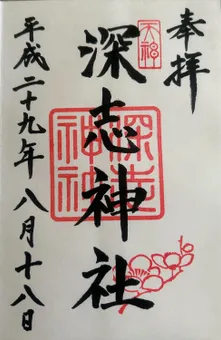 奉拝
天神
深志神社
深志
神社
平成二十九年八月十八日